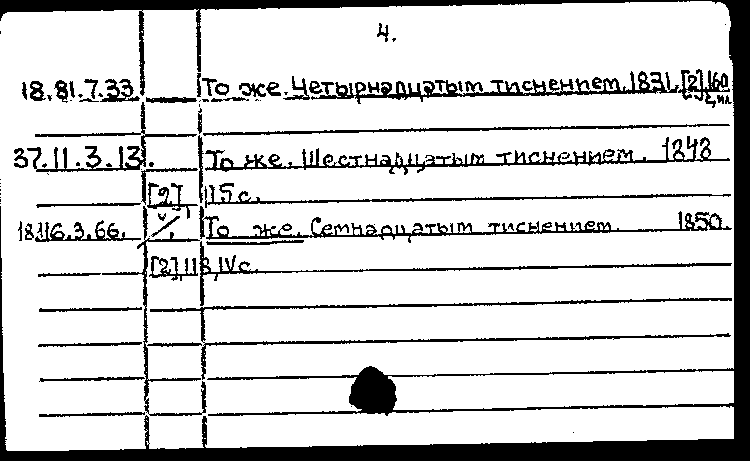 4.
18.81.7.33. То же. Четырнадцатым тиснением. 1831. [2], 160
с., ил
37.11.3.13. То же. Шестнадцатым тиснением. 1848
[2] 115 с.
18.116.3.66. То же. Семнадцатым тиснением. 1850.
[2], 118, IV с.